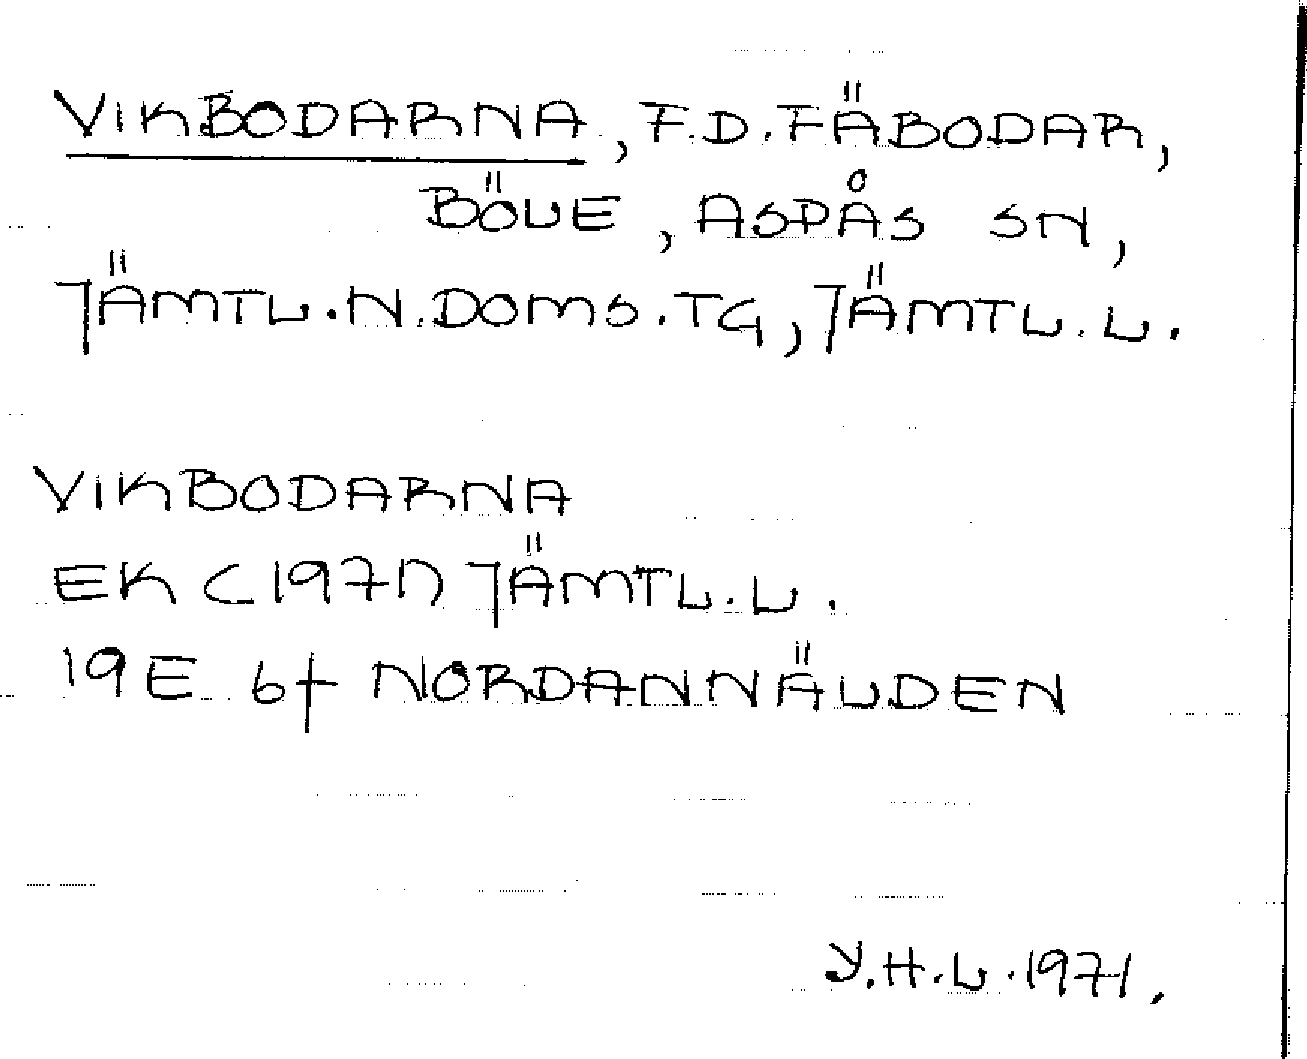 VIKBODARNA, F.D. FÄBODAR,
BÖLE, ASPÅS SN,
JÄMTL. N. DOMS. TG, JÄMTL. L.
VIKBODARNA
EK (1971) JÄMTL. L.
19E 6f NORDANNÄLDEN
Y.H.L. 1971.